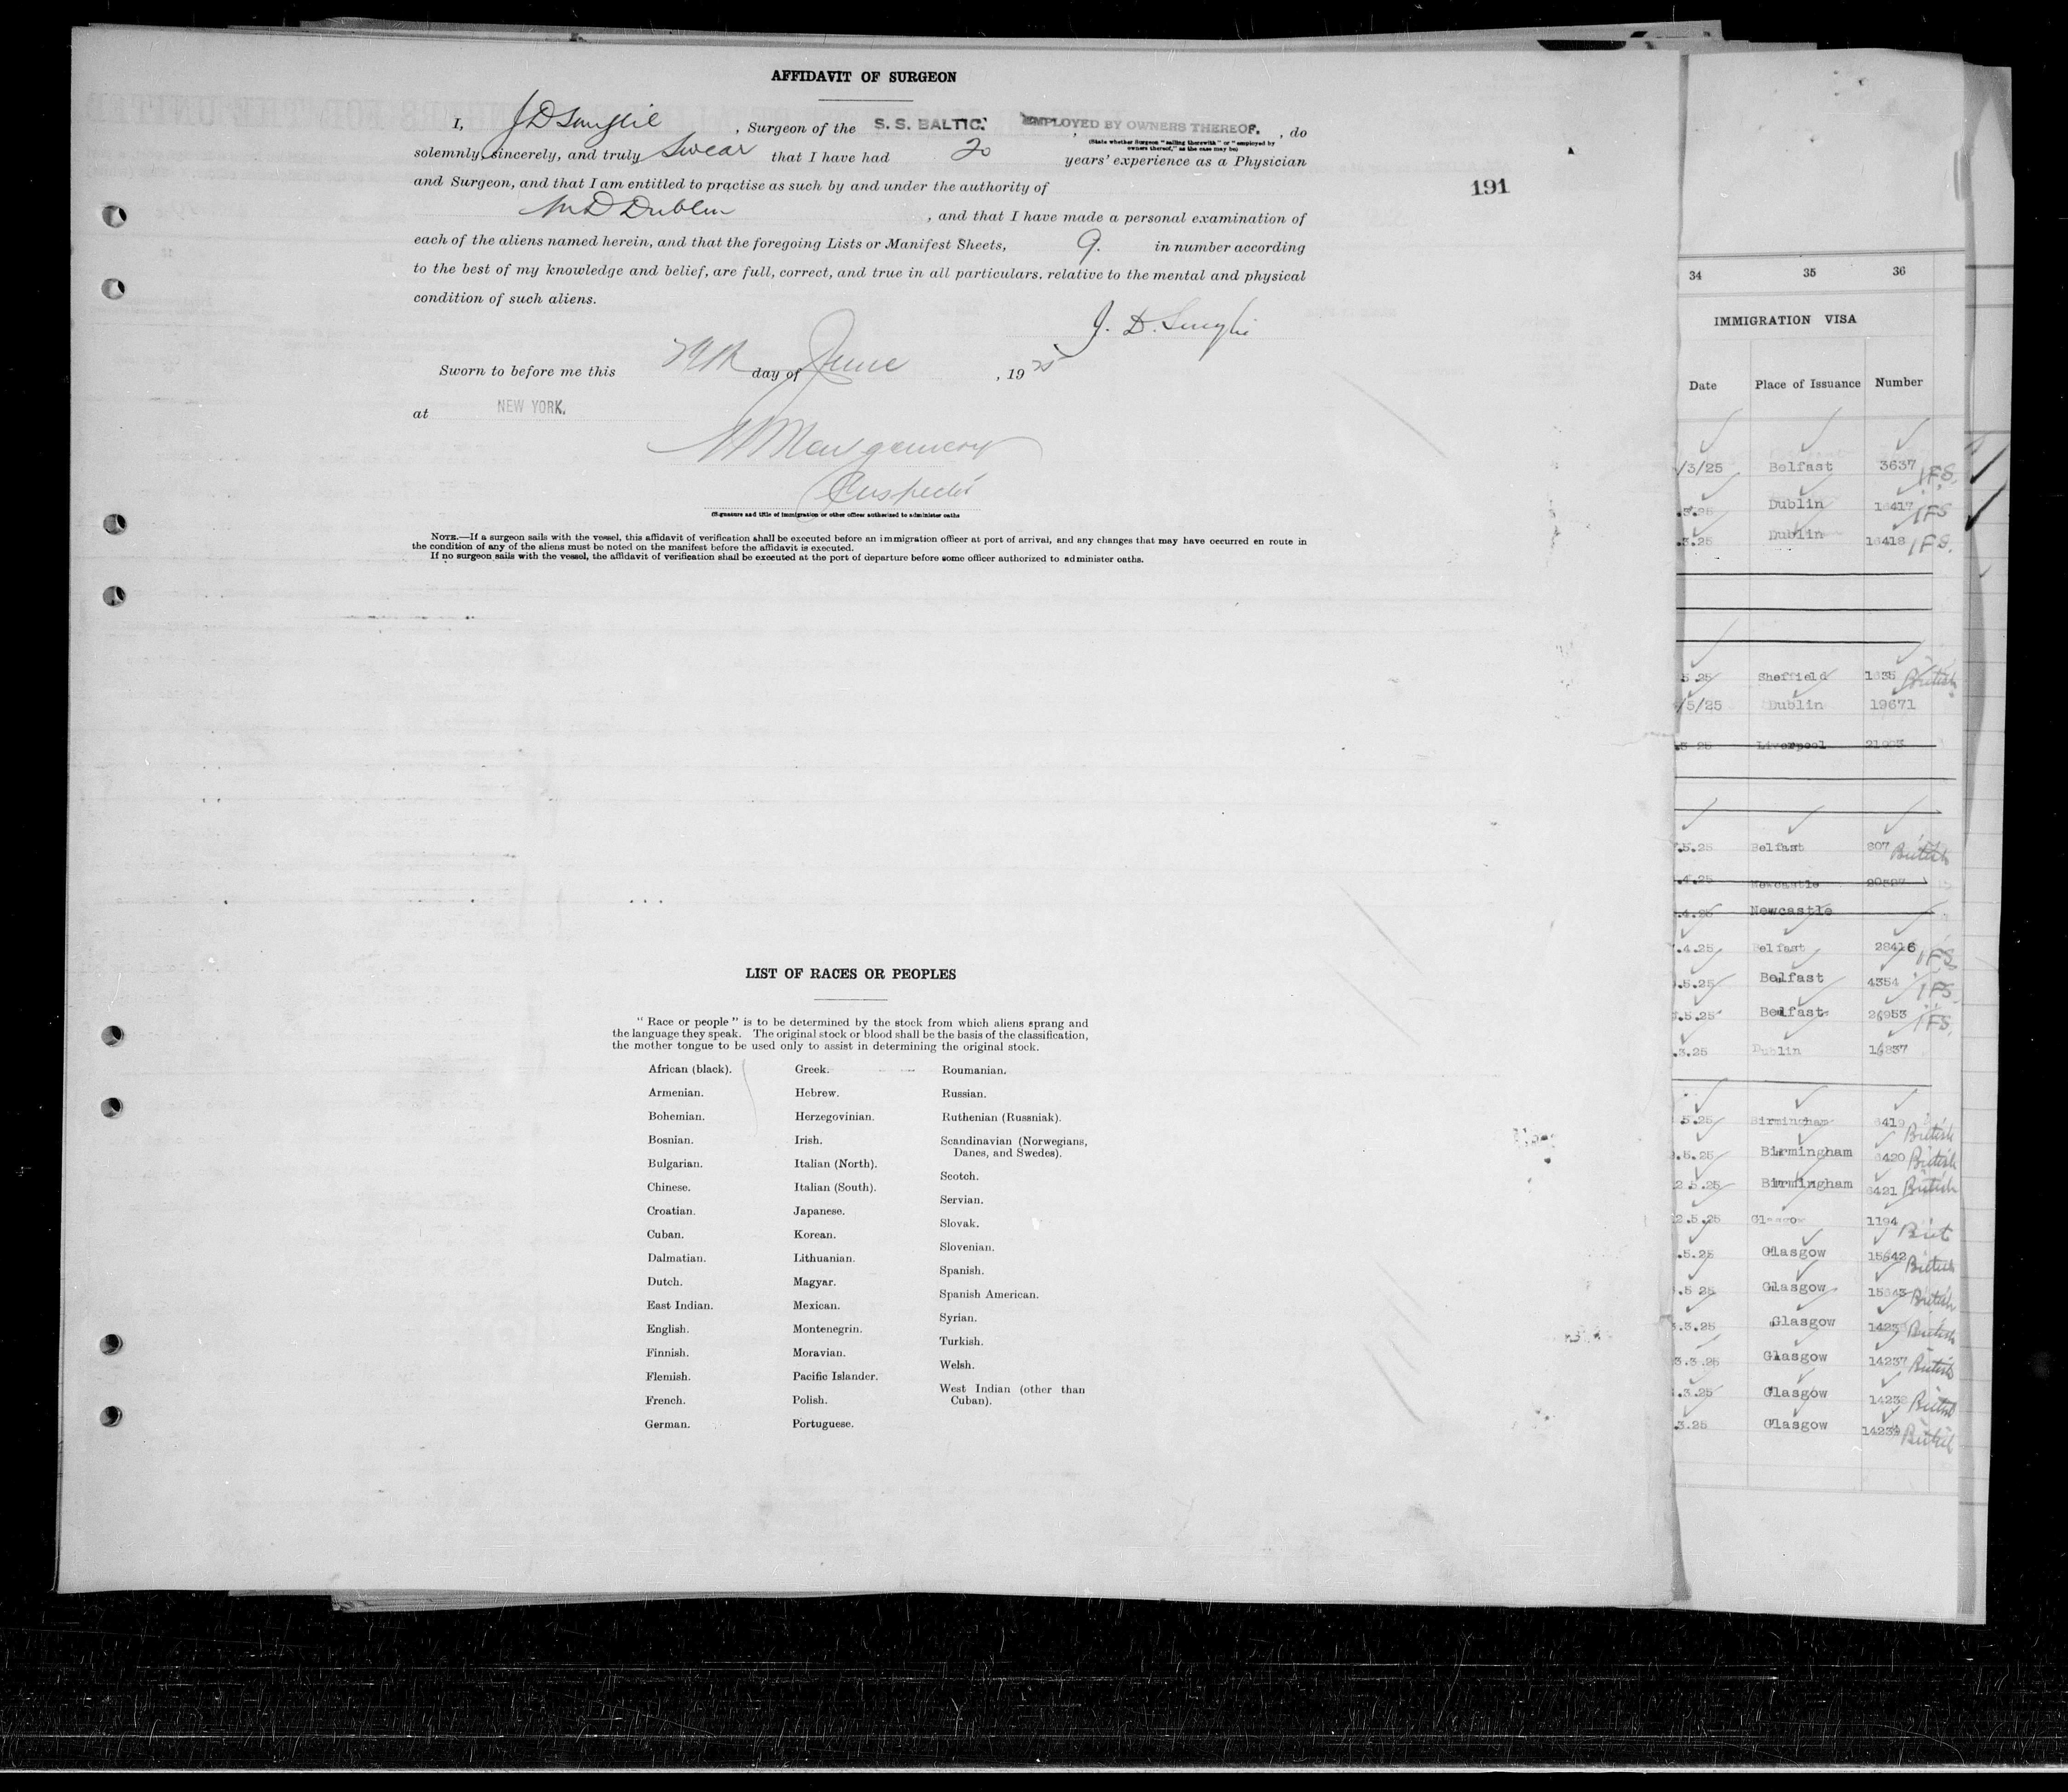 AFFIDAVIT OF SURGEON
I, J D , Surgeon of the S. S. BALTIC. EMPLOYED BY OWNERS THEREOF. , do
(State whether Surgeon "sailing therewith" or "employed by
owners thereof," as the case may be)
solemnly, sincerely, and truly swear that I have had 20 years' experience as a Physician
and Surgeon, and that I am entitled to practise as such by and under the authority of
M D Dublin , and that I have made a personal examination of
each of the aliens named herein, and that the foregoing Lists or Manifest Sheets, 9. in number according
to the best of my knowledge and belief, are full, correct, and true in all particulars. relative to the mental and physical
condition of such aliens.
J. D.
Sworn to before me this day of June , 19 25
at NEW YORK.
Montgomery
Inspector
(Signature and title of immigration or other officer authorized to administer oaths
NOTE.—If a surgeon sails with the vessel, this affidavit of verification shall be executed before an immigration officer at port of arrival, and any changes that may have occurred en route in
the condition of any of the aliens must be noted on the manifest before the affidavit is executed.
If no surgeon sails with the vessel, the affidavit of verification shall be executed at the port of departure before some officer authorized to administer oaths.
191
LIST OF RACES OR PEOPLES
"Race or people" is to be determined by the stock from which aliens sprang and
the language they speak. The original stock or blood shall be the basis of the classification,
the mother tongue to be used only to assist in determining the original stock.
African (black).
Armenian.
Bohemian.
Bosnian.
Bulgarian.
Chinese.
Croatian.
Cuban.
Dalmatian.
Dutch.
East Indian.
English.
Finnish.
Flemish.
French.
German.
Greek.
Hebrew.
Herzegovinian.
Irish.
Italian (North).
Italian (South).
Japanese.
Korean.
Lithuanian.
Magyar.
Mexican.
Montenegrin.
Moravian.
Pacific Islander.
Polish.
Portuguese.
Roumanian.
Russian.
Ruthenian (Russniak).
Scandinavian (Norwegians,
Danes, and Swedes).
Scotch.
Servian.
Slovak.
Slovenian.
Spanish.
Spanish American.
Syrian.
Turkish.
Welsh.
West Indian (other than
Cuban).
34 35 36
IMMIGRATION VISA
Date Place of Issuance Number
/3/25 Belfast 3637 IFS.
.3.25 Dublin 16417 IFS
.3.25 Dublin 16418 IFS.
5.25 Sheffield British
/5/25 Dublin 19671
Liverpool
.5.25 Belfast 807 British
.4.25 Newcastle
.4.25 Newcastle
.4.25 Belfast 28416 IFS
.5.25 Belfast 4354 IFS
.5.25 Belfast IFS.
.3.25 Dublin
.5.25 Birmingham 6419 British
.5.25 Birmingham 6420 British
2.5.25 Birmingham 6421 British
2.5.25 Glasgow 1194 Brit
.5.25 Glasgow 15642 British
.5 25 Glasgow 15643 British
3.3.25 Glasgow British
3.3.25 Glasgow 14237 British
.3.25 Glasgow 14238 British
.3.25 Glasgow 14239 British